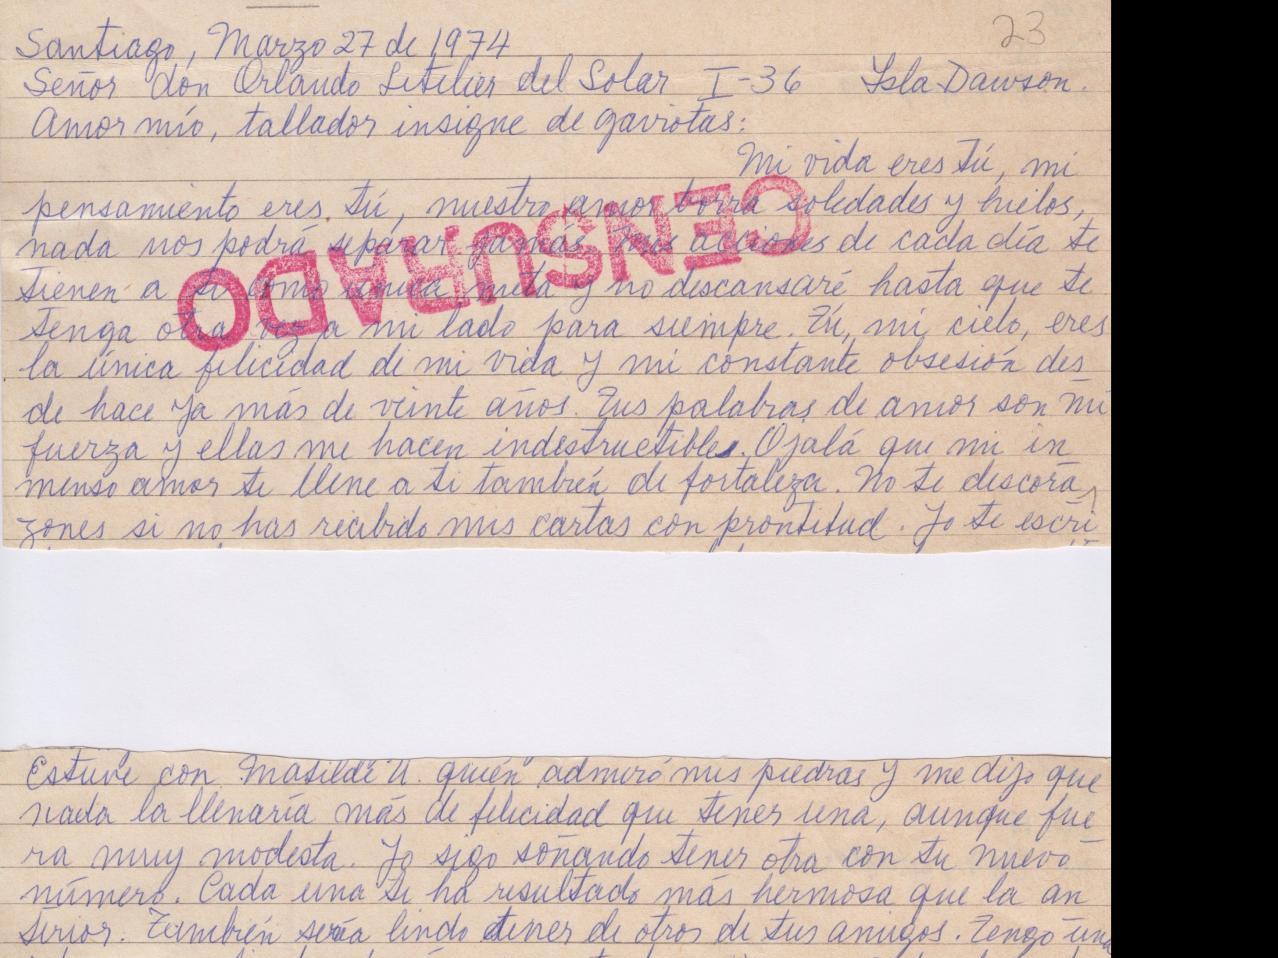 23
Santiago, Marzo 27 de 1974
Señor don Orlando Letelier del Solar I-36 Isla Dawson.
Amor mío, tallador insigne de gaviotas:
Mi vida eres tú, mi
pensamiento eres tú, nuestro amor borra soledades y hielos,
nada nos podrá separar jamás. Mis acciones de cada día te
tienen a ti como única meta y no descansaré hasta que te
tenga otra vez a mi lado para siempre. Tú, mi cielo, eres
la única felicidad de mi vida y mi constante obsesión des
de hace ya más de veinte años. Tus palabras de amor son mi
fuerza y ellas me hacen indestructible. Ojalá que mi in
menso amor te llene a ti también de fortaleza. No te descora
zones si no has recibido mis cartas con prontitud. Yo te escri
CENSURADO
Estuve con Matilde U. quién admiró mis piedras y me dijo que
nada la llenaría más de felicidad que tener una, aunque fue
ra muy modesta. Yo sigo soñando tener otra con tu nuevo
número. Cada una te ha resultado más hermosa que la an
terior. También sería lindo tener de otros de tus amigos. Tengo una